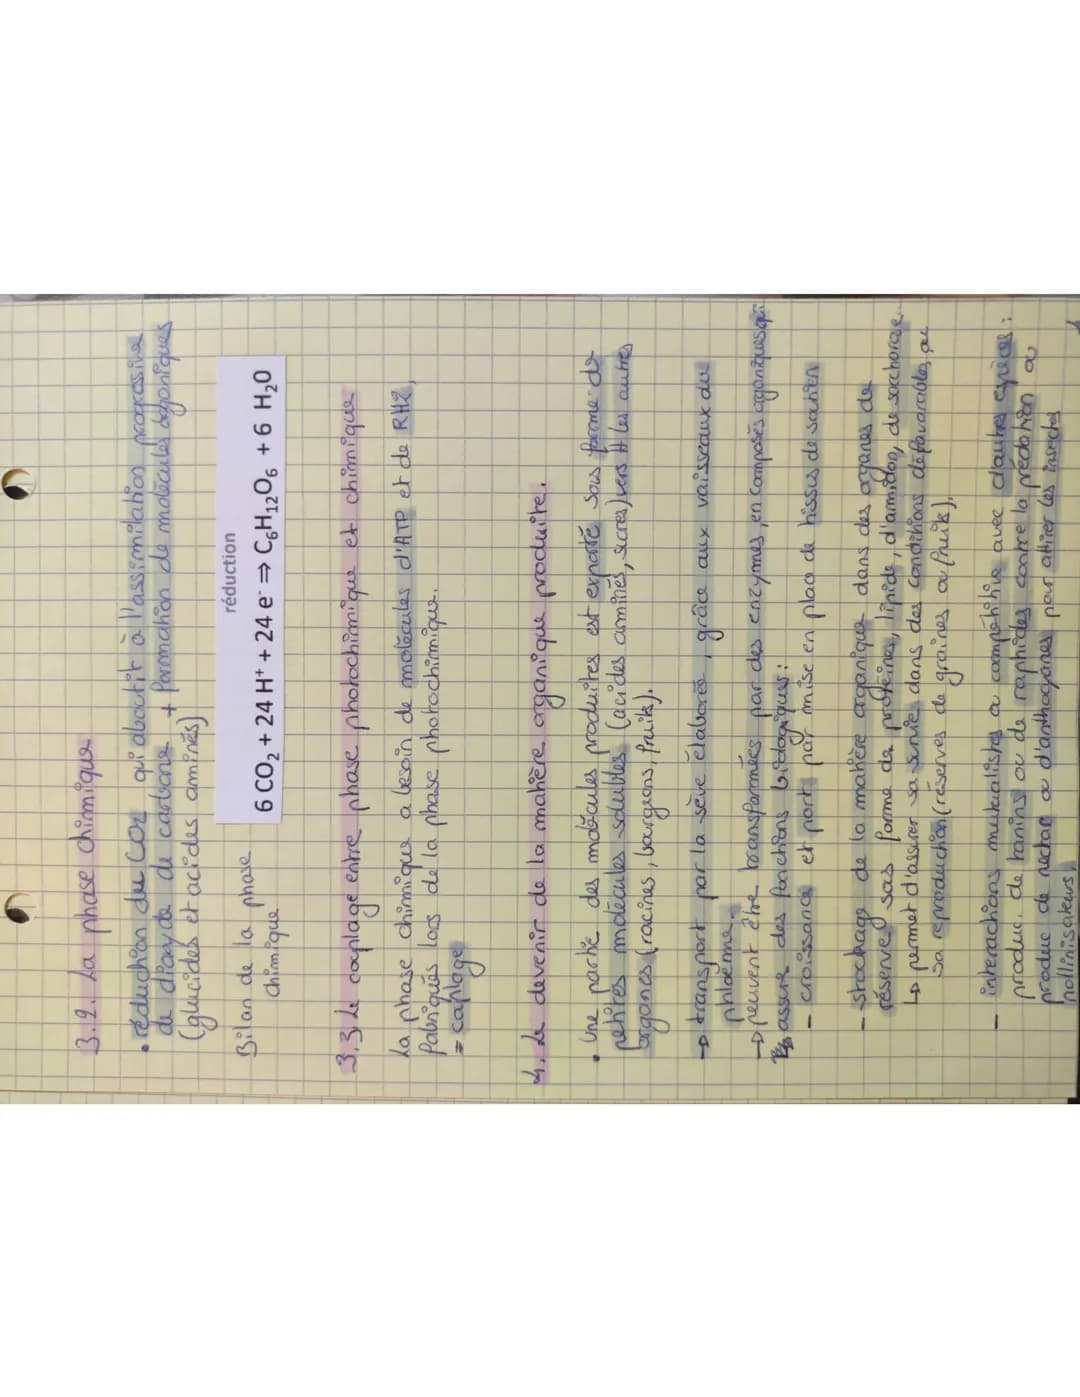 3.2. La phase chimique
• réduction du CO2 qui aboutit à l'assimilation progressive
de dioxyde de carbone + formation de molécules organiques
(glucides et acides aminés)
Bilan de la phase
chimique
réduction
6 CO₂ + 24 H⁺ + 24 e⁻ ⇒ C₆H₁₂O₆ + 6 H₂O
3.3 Le couplage entre phase photochimique et chimique
La phase chimique a besoin de molécules d'ATP et de RH2,
fabriqués lors de la phase photochimique.
= couplage
4. Le devenir de la matière organique produite.
• Une partie des molécules produites est exporté sous forme de
petites molécules solubles (acides aminés, sucres) vers les autres
organes (racines, bourgeons, fruits).
→ transport par la sève élaborée, grâce aux vaisseaux du
phloème.
→ peuvent être transformées par des enzymes, en composés organiques qui
assure des fonctions biologiques :
- croissance et port par mise en place de tissus de soutien
- stockage de la matière organique dans des organes de
réserve, sous forme de protéines, lipide, d'amidon, de saccharose.
↳ permet d'assurer sa survie, dans des conditions défavorables, ou
sa reproduction (réserves de graines ou fruits),
- interactions mutualistes ou compétitive avec d'autres espèces :
produc. de tanins ou de raphides contre la prédation ou
produc de nectar ou d'anthocyanes pour attirer les insectes
pollinisateurs.